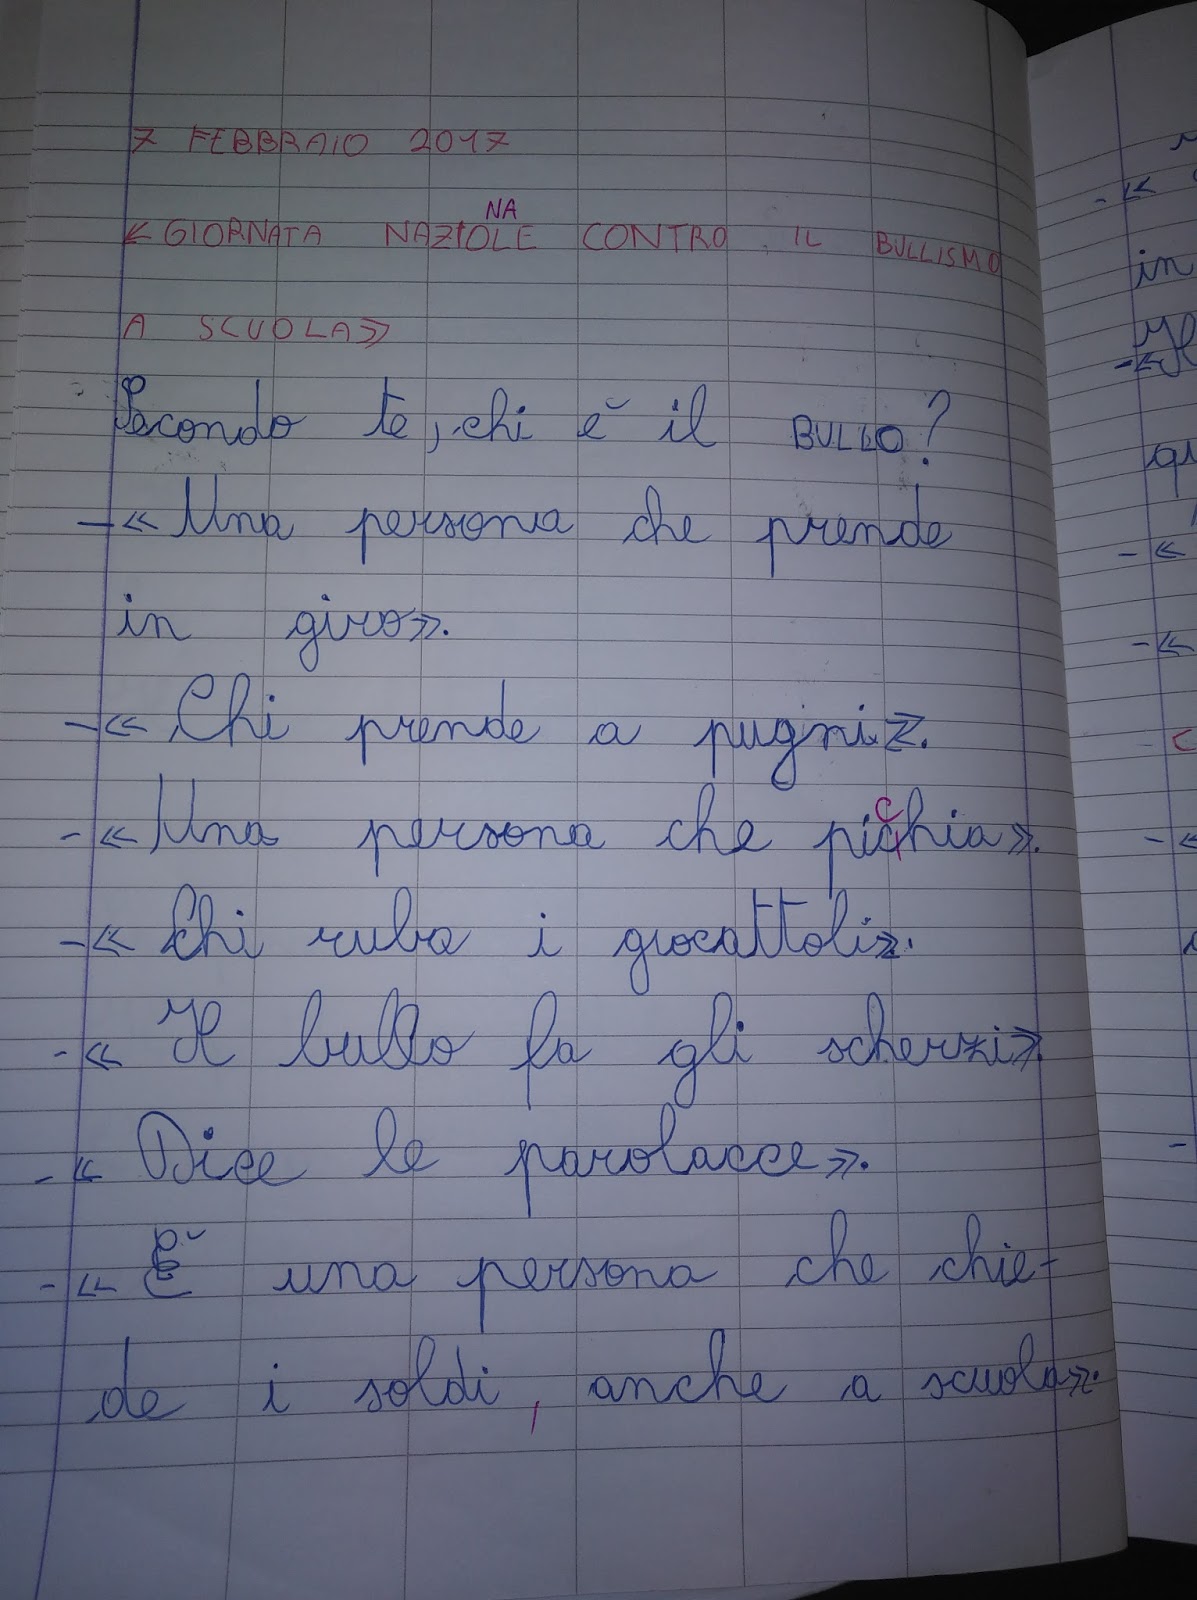 7 FEBBRAIO 2017
NA
«GIORNATA NAZIOLE CONTRO IL BULLISMO
A SCUOLA»
Secondo te, chi è il BULLO?
-« Una persona che prende
in giro».
-« Chi prende a pugni».
-« Una persona che picchia».
-« Chi ruba i giocattoli».
-« Il bullo fa gli scherzi»
-« Dice le parolacce».
-« È una persona che chie-
de i soldi, anche a scuola».
in